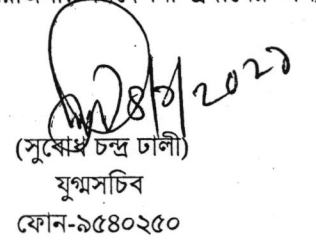 ৪/১/২০২১
(সুবোধ চন্দ্র ঢালী)
যুগ্মসচিব
ফোন-৯৫৪০২৫০